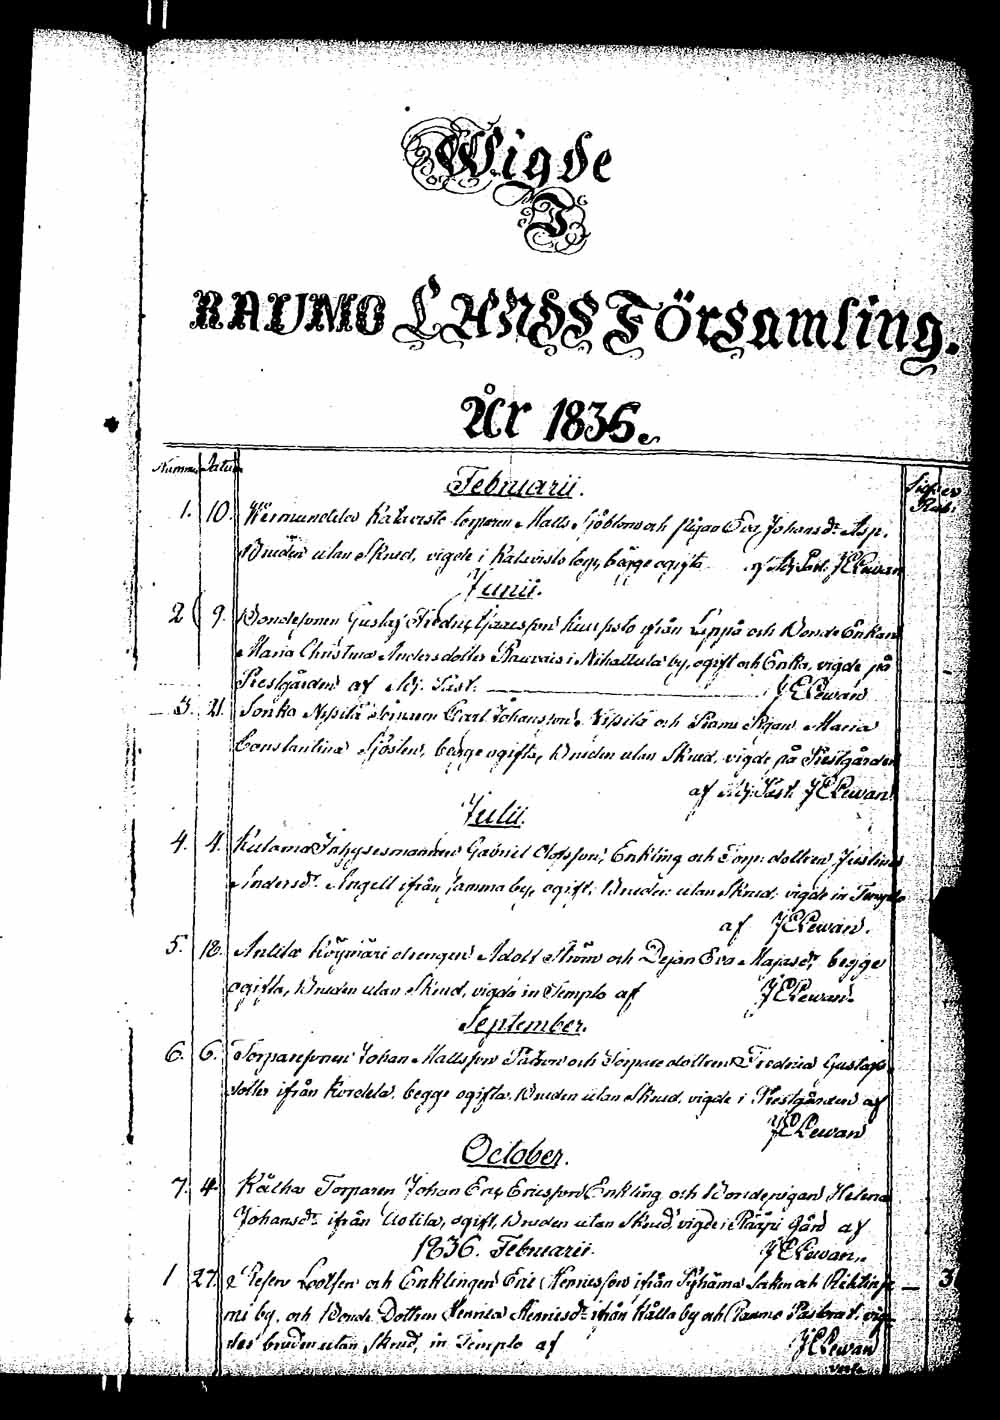 Wigde
I
RAUMO LANDS Församling.
År 1835.
Numm. Datum
Februarii.
1. 10. Torparen Matts Sjöblom och pigan Eva Johansdr Asp.
Bruden utan Skrud, vigde i torp, bägge ogifta af Adj. Past. J E Lewan
Junii.
2 9. Bondesonen Gustaf ifrån och Bonde Enkan
Maria Christina Andersdotter i Nihattula by, ogift och Enka, vigde på
Prestgården af Adj. Past. J E Lewan
3. 21. Sonka Nissilä Carl Johansson Nissilä och Pigan Maria
Constantina Sjösten, begge ogifta, Bruden utan Skrud, vigde på Prestgården
af Adj. Past. J E Lewan
Julii.
4. 4. Gabriel Olofsson, Enkling och Torp: dottren Justina
Andersdr ifrån by, ogift, Bruden utan Skrud, vigde in Templo
af J E Lewan.
5. 18. Anttila drengen Adolf Ström och Dejan Eva Majasdr, begge
ogifta, Bruden utan Skrud, vigde in Templo af J E Lewan.
September.
6. 6. Torparesonen Johan Mattsson och Torpare dottren Fredrica Gustafs
dotter ifrån Kordela, begge ogifta, Bruden utan Skrud, vigde i Prestgården af
J E Lewan
October.
7. 4. Torparen Johan Eric Ericsson Enkling och Bondepigan Helena
Johansdr ifrån Uotila, ogift, Bruden utan Skrud, vigde i Gård af
1836. Februarii. J E Lewan.
1 27. Lootsen och Enklingen Eric Henricsson ifrån Pyhäma Socken och — 3
by, och Bonde Dottren Henrica Henricsdr ifrån by och Raumo Pastorat, vig-
des bruden utan Skrud, in Templo af J E Lewan